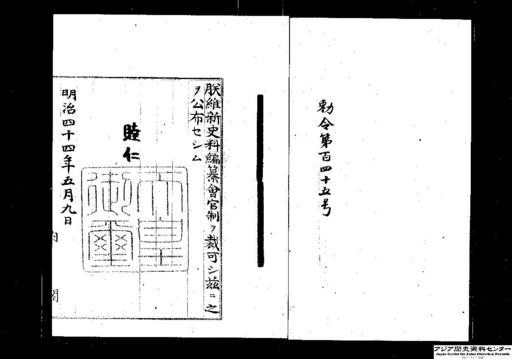 勅令第百四十五号
朕維新史料編纂會官制ヲ裁可シ茲ニ之
ヲ公布セシム
睦仁
天皇御璽
明治四十四年五月九日
内閣
アジア歴史資料センター
Japan Center for Asian Historical Records